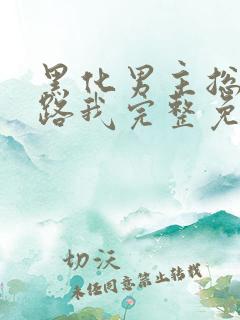 黑化男主抢
路我完整免
切沃
未经同意禁止转载